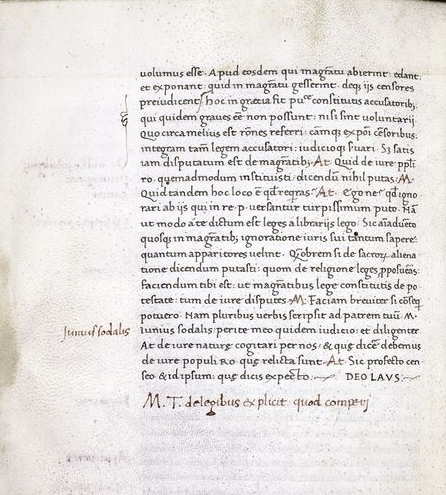 uolumus esse. Apud eosdem qui magratu abierint: edant:
et exponant: quid in magratu gesserint. deq; ijs censores
preiudicent. hoc in gręcia fit puce constitutis accusatorib;
qui quidem graues eē non possunt: nisi sint uoluntarij.
Quocirca melius est rōnes referri: cāmq; exponi cēsorib;
integram tam legem accusatori: iudicioq; suari. Sʒ satis
iam disputatum est de magratib; At. Quid de iure ppli
ro. quemadmodum instituisti. dicendū nihil putas: M.
Quid tandem hoc loco ē qd reqras. At. Egone qd igno
rari ab ijs qui in re. p. uersantur turpissimum puto. Nā
ut modo a te dictum est leges a librarijs lego. Sic aīaduerto
quosq; in magratib; ignoratione iuris sui tantum sapere:
quantum apparitores uelint. Qobrem si de sacrorz aliena
tione dicendum putasti: quom de religione leges ꝓposueras:
faciendum tibi est: ut magratibus lege constitutis de po
testate: tum de iure disputes. M. Faciam breuiter si cōseq
potuero. Nam pluribus uerbis scripsit ad patrem tuū. M.
iunius sodalis: perite meo quidem iudicio: et diligenter.
At de iure naturę cogitari per nos: & quę dicē debemus
de iure populi ro. quę relicta sunt. At. Sic prosecto cen
seo & id ipsum: quę dicis expecto. DEO LAVS:
Iunius sodalis
M. T. de legibus explicit quod comperi